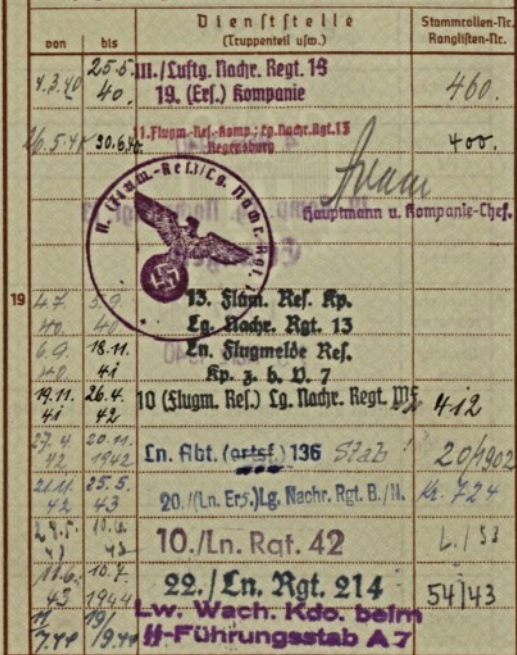 Dienststelle
(Truppenteil usw.)
Stammrollen-Nr.
Ranglisten-Nr.
von bis
4.3.40 25.5.40. III./Luftg. Nachr. Regt. 13 460.
19. (Ers.) Kompanie
26.5.40 30.6.40 11. Flugm.-Res.-Komp.; Lg. Nachr. Rgt. 13 400.
Regensburg
Hauptmann u. Kompanie-Chef.
19
4.7.40 5.9.40 13. Flum. Res. Kp.
Lg. Nachr. Rgt. 13
6.9.40 18.11.41 Ln. Flugmelde Res.
Kp. z. b. V. 7
19.11.41 26.4.42 10 (Flugm. Res.) Lg. Nachr. Regt. 412
27.4.42 20.11.1942 Ln. Abt. (ortsf.) 136 Stab 20/1902
21.11.42 25.5.43 20./(Ln. Ers.) Lg. Nachr. Rgt. B./H. Kr. 724
10./Ln. Rgt. 42 L./53
11.6.43 10.7.1944 22./Ln. Rgt. 214 54/43
11/7.44 19/9.44 Lw. Wach. Kdo. beim
SS-Führungsstab A7